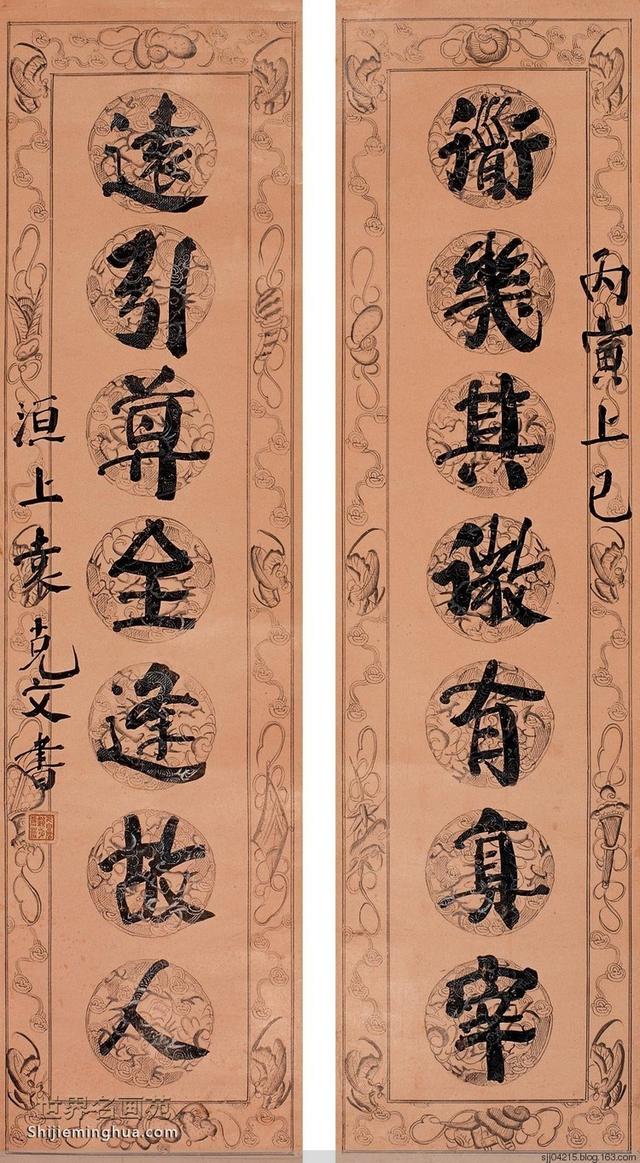 衟幾其微有真宰
丙寅上巳
遠引尊全逢故人
洹上袁克文書
世界名画苑
Shijieminghua.com
sjj04215.blog.163.com